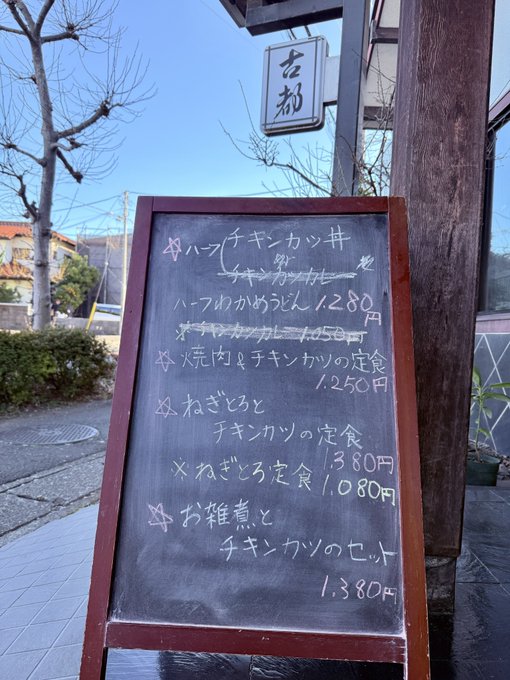 古都
☆ハーフ(チキンカツ丼
チキンカツカレー
ハーフわかめうどん 1.280円
※チキンカツカレー 1.050円
☆焼肉&チキンカツの定食
1.250円
☆ねぎとろと
チキンカツの定食
1.380円
※ねぎとろ定食 1.080円
☆お雑煮と
チキンカツのセット
1.380円